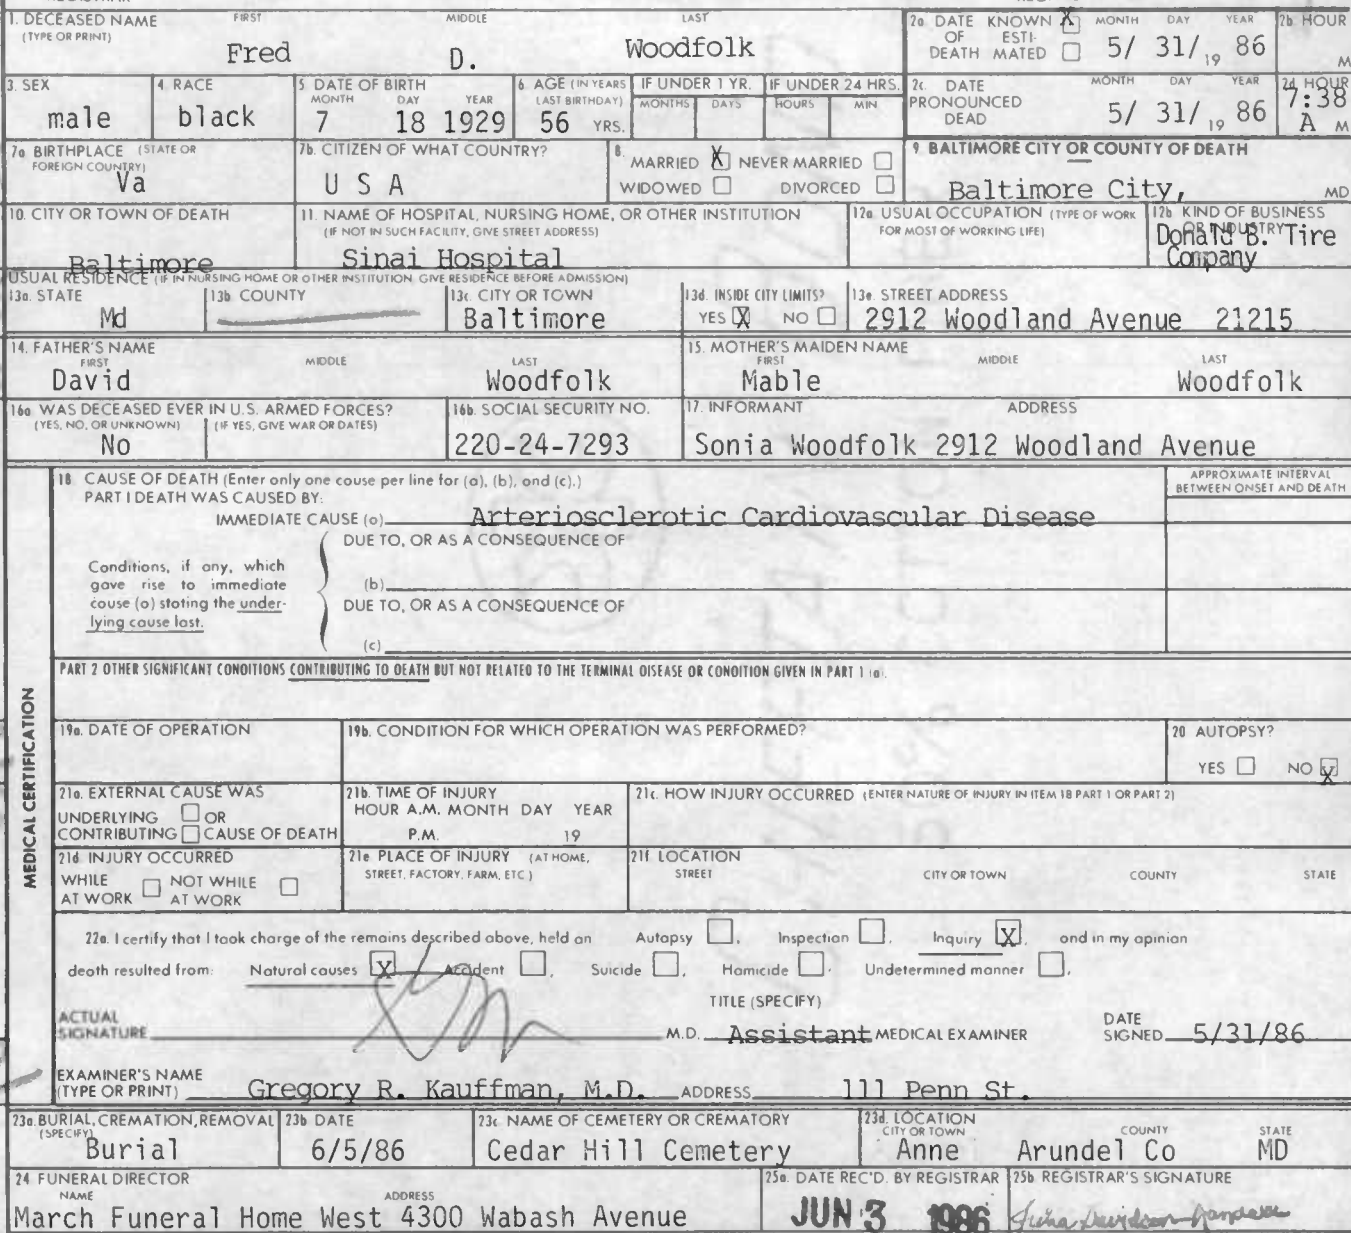 1. DECEASED NAME FIRST MIDDLE LAST
(TYPE OR PRINT)
Fred D. Woodfolk
2a DATE KNOWN X MONTH DAY YEAR
OF ESTI-
DEATH MATED 5/ 31/ 19 86
2b. HOUR
M
3. SEX
male
4 RACE
black
5 DATE OF BIRTH
MONTH DAY YEAR
7 18 1929
6. AGE (IN YEARS
LAST BIRTHDAY)
56 YRS.
IF UNDER 1 YR.
MONTHS DAYS
IF UNDER 24 HRS.
HOURS MIN.
2c. DATE MONTH DAY YEAR
PRONOUNCED
DEAD 5/ 31/ 19 86
2d HOUR
7:38
A M
7a BIRTHPLACE (STATE OR
FOREIGN COUNTRY)
Va
7b. CITIZEN OF WHAT COUNTRY?
U S A
8.
MARRIED X NEVER MARRIED
WIDOWED DIVORCED
9. BALTIMORE CITY OR COUNTY OF DEATH
Baltimore City, MD
10. CITY OR TOWN OF DEATH
Baltimore
11. NAME OF HOSPITAL, NURSING HOME, OR OTHER INSTITUTION
(IF NOT IN SUCH FACILITY, GIVE STREET ADDRESS)
Sinai Hospital
12a. USUAL OCCUPATION (TYPE OF WORK
FOR MOST OF WORKING LIFE)
12b KIND OF BUSINESS
OR INDUSTRY
Donald B. Tire
Company
USUAL RESIDENCE (IF IN NURSING HOME OR OTHER INSTITUTION GIVE RESIDENCE BEFORE ADMISSION)
13a. STATE
Md
13b COUNTY
13c. CITY OR TOWN
Baltimore
13d. INSIDE CITY LIMITS?
YES X NO
13e. STREET ADDRESS
2912 Woodland Avenue 21215
14. FATHER'S NAME
FIRST MIDDLE LAST
David Woodfolk
15. MOTHER'S MAIDEN NAME
FIRST MIDDLE LAST
Mable Woodfolk
16a WAS DECEASED EVER IN U.S. ARMED FORCES?
(YES, NO, OR UNKNOWN) (IF YES, GIVE WAR OR DATES)
No
16b. SOCIAL SECURITY NO.
220-24-7293
17. INFORMANT ADDRESS
Sonia Woodfolk 2912 Woodland Avenue
MEDICAL CERTIFICATION
18 CAUSE OF DEATH (Enter only one cause per line for (a), (b), and (c).)
PART I DEATH WAS CAUSED BY:
APPROXIMATE INTERVAL
BETWEEN ONSET AND DEATH
IMMEDIATE CAUSE (a) Arteriosclerotic Cardiovascular Disease
DUE TO, OR AS A CONSEQUENCE OF
Conditions, if any, which
gave rise to immediate
cause (a) stating the under-
lying cause last.
(b)
DUE TO, OR AS A CONSEQUENCE OF
(c)
PART 2 OTHER SIGNIFICANT CONDITIONS CONTRIBUTING TO DEATH BUT NOT RELATED TO THE TERMINAL DISEASE OR CONDITION GIVEN IN PART 1 (a).
19a. DATE OF OPERATION
19b. CONDITION FOR WHICH OPERATION WAS PERFORMED?
20 AUTOPSY?
YES NO X
21a. EXTERNAL CAUSE WAS
UNDERLYING OR
CONTRIBUTING CAUSE OF DEATH
21b. TIME OF INJURY
HOUR A.M. MONTH DAY YEAR
P.M. 19
21c. HOW INJURY OCCURRED (ENTER NATURE OF INJURY IN ITEM 18 PART 1 OR PART 2)
21d INJURY OCCURRED
WHILE NOT WHILE
AT WORK AT WORK
21e PLACE OF INJURY (AT HOME,
STREET, FACTORY, FARM, ETC.)
21f LOCATION
STREET CITY OR TOWN COUNTY STATE
22a. I certify that I took charge of the remains described above, held an Autopsy , Inspection , Inquiry X , and in my opinion
death resulted from: Natural causes X Accident , Suicide , Homicide , Undetermined manner ,
TITLE (SPECIFY)
ACTUAL
SIGNATURE M.D. Assistant MEDICAL EXAMINER
DATE
SIGNED 5/31/86
EXAMINER'S NAME
(TYPE OR PRINT) Gregory R. Kauffman, M.D. ADDRESS 111 Penn St.
23a. BURIAL, CREMATION, REMOVAL
(SPECIFY)
Burial
23b DATE
6/5/86
23c NAME OF CEMETERY OR CREMATORY
Cedar Hill Cemetery
23d. LOCATION
CITY OR TOWN COUNTY STATE
Anne Arundel Co MD
24 FUNERAL DIRECTOR
NAME ADDRESS
March Funeral Home West 4300 Wabash Avenue
25a. DATE REC'D. BY REGISTRAR
JUN 3 1986
25b REGISTRAR'S SIGNATURE